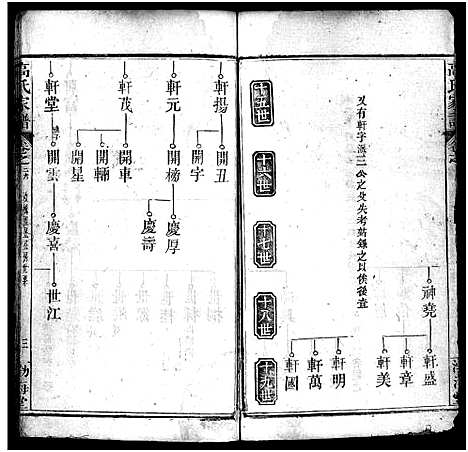 高氏家譜
神堯
軒盛
軒章
軒美
又有軒字派三公之父失考茲錄之以俟後查
軒明
軒萬
軒國
十五世
十六世
十七世
十八世
十九世
軒揚
開丑
開字
軒元
開榜
慶厚
慶壽
軒茂
開車
開輛
開星
軒堂
開雲
慶喜
世江
高氏家譜
三
渤海堂